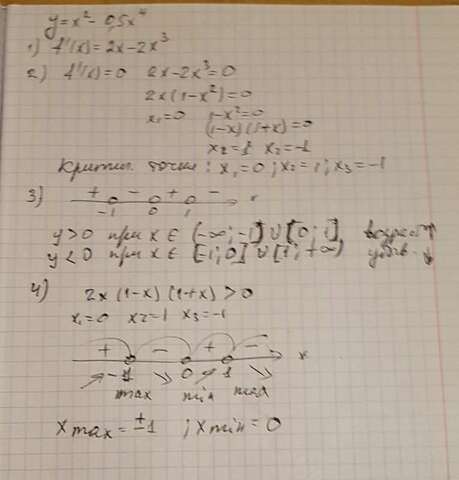 y=x²-0,5x⁴
1) f'(x)=2x-2x³
2) f'(x)=0 2x-2x³=0
2x(1-x²)=0
x₁=0 1-x²=0
(1-x)(1+x)=0
x₂=1 x₂=-1
Критич. точки: x₁=0; x₂=1; x₃=-1
3) + - + - x
-1 0 1
y>0 при x∈(-∞;-1]∪[0;1] возраст ↑
y<0 при x∈[-1;0]∪[1;+∞) убыв-↓
4) 2x(1-x)(1+x)>0
x₁=0 x₂=1 x₃=-1
+ - + - x
↗ -1 ↘ 0 ↗ 1 ↘
max min max
x max = ±1 ; x min = 0